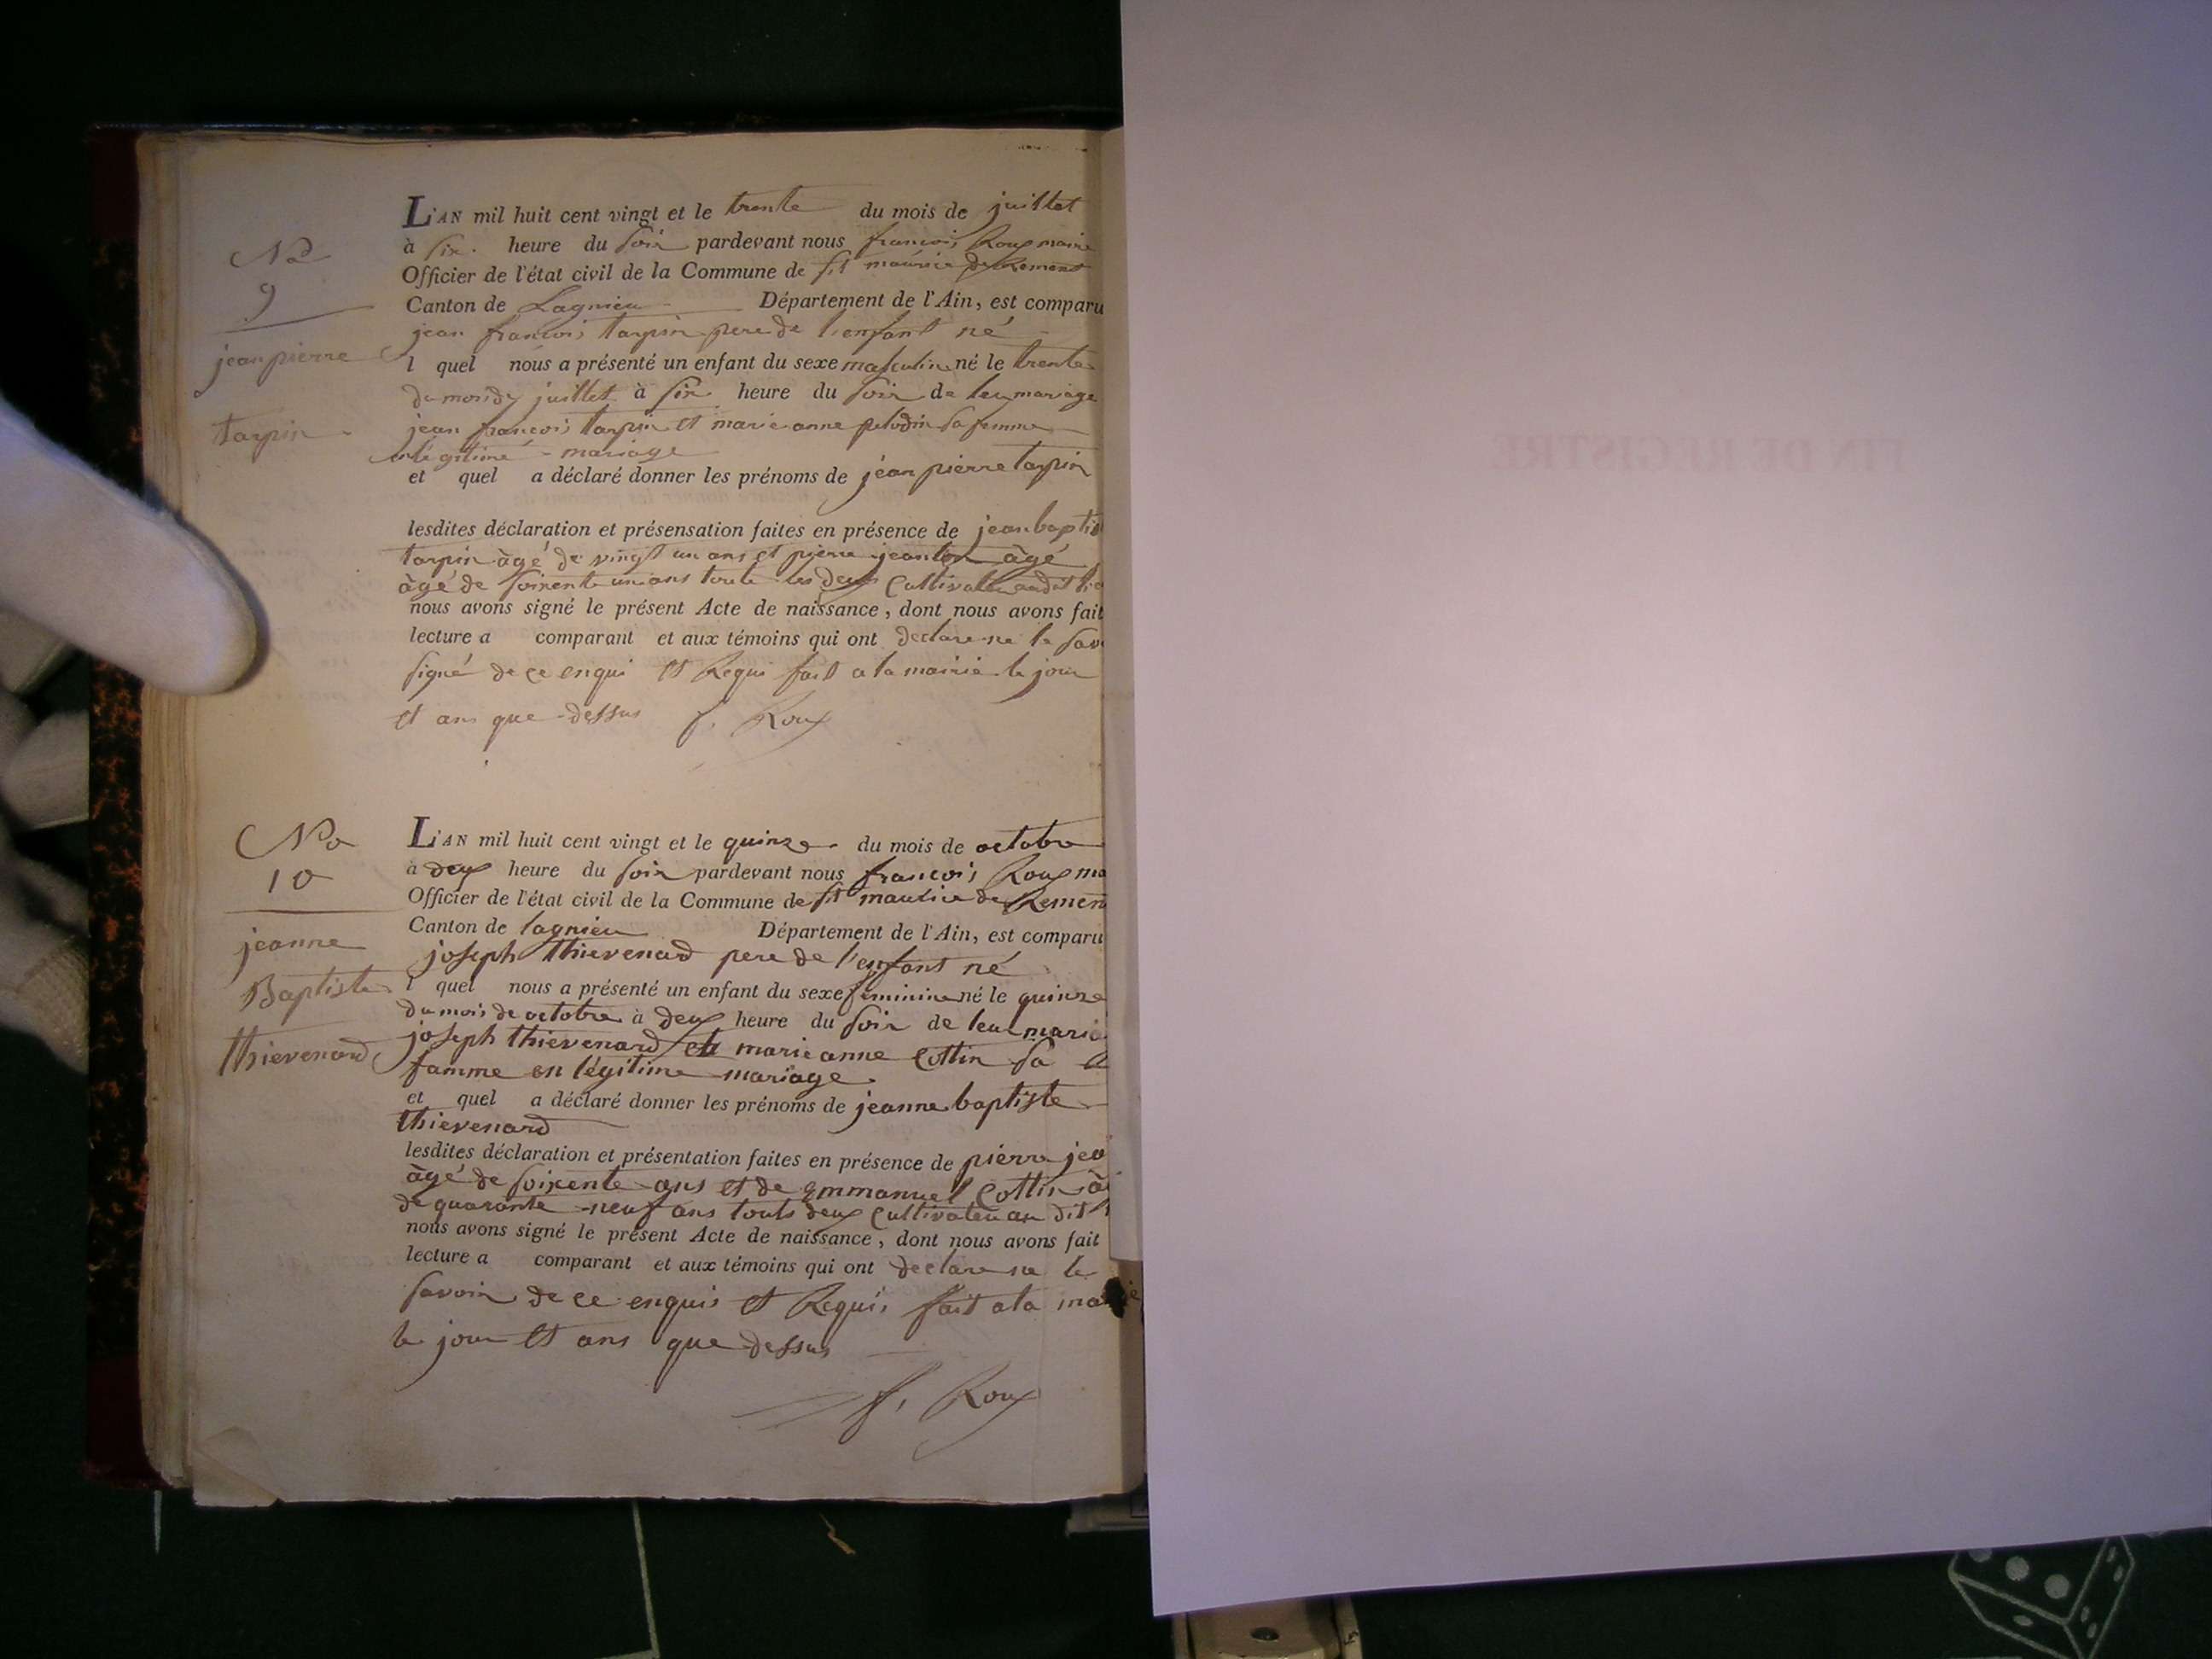 L'AN mil huit cent vingt et le trente du mois de juillet
à six heure du soir pardevant nous francois Roux maire
Officier de l'état civil de la Commune de st maurice de Remens
Canton de Lagnieu Département de l'Ain, est comparu
jean francois tarpin pere de l'enfant né
l quel nous a présenté un enfant du sexe masculin né le trente
du mois de juillet à six heure du soir de leu mariage
jean francois tarpin et marie anne sa femme
légitime mariage
et quel a déclaré donner les prénoms de jean pierre tarpin
lesdites déclaration et présensation faites en présence de jean baptis
tarpin àgé de vingt un ans et pierre jeanton àgé
àgé de soixente un ans toute les deux Cultivateu audit lie
nous avons signé le présent Acte de naissance, dont nous avons fait
lecture a comparant et aux témoins qui ont declare ne le sav
signé de ce enqui et Requi fait a la mairie le jour
et ans que dessus f. Roux
No
9
jean pierre
tarpin
L'AN mil huit cent vingt et le quinze du mois de octobre
à deux heure du soir pardevant nous francois Roux ma
Officier de l'état civil de la Commune de st maurice de Remen
Canton de lagnieu Département de l'Ain, est comparu
joseph thievenard pere de l'enfant né
l quel nous a présenté un enfant du sexe feminine né le quinze
du mois de octobre à deux heure du soir de leu maria
joseph thievenard et marie anne Cottin sa
famme en légitime mariage
et quel a déclaré donner les prénoms de jeanne baptiste
thievenard
lesdites déclaration et présentation faites en présence de pierre jea
àgé de soixente ans et de Emmanuel Cottin à
de quarante neuf ans touts deux Cultivateu au dit l
nous avons signé le présent Acte de naissance, dont nous avons fait
lecture a comparant et aux témoins qui ont declare ne le
savoir de ce enquis et Requis fait a la mai
le jour et ans que dessus
f. Roux
No
10
jeanne
Baptiste
thievenard
FIN DE REGISTRE